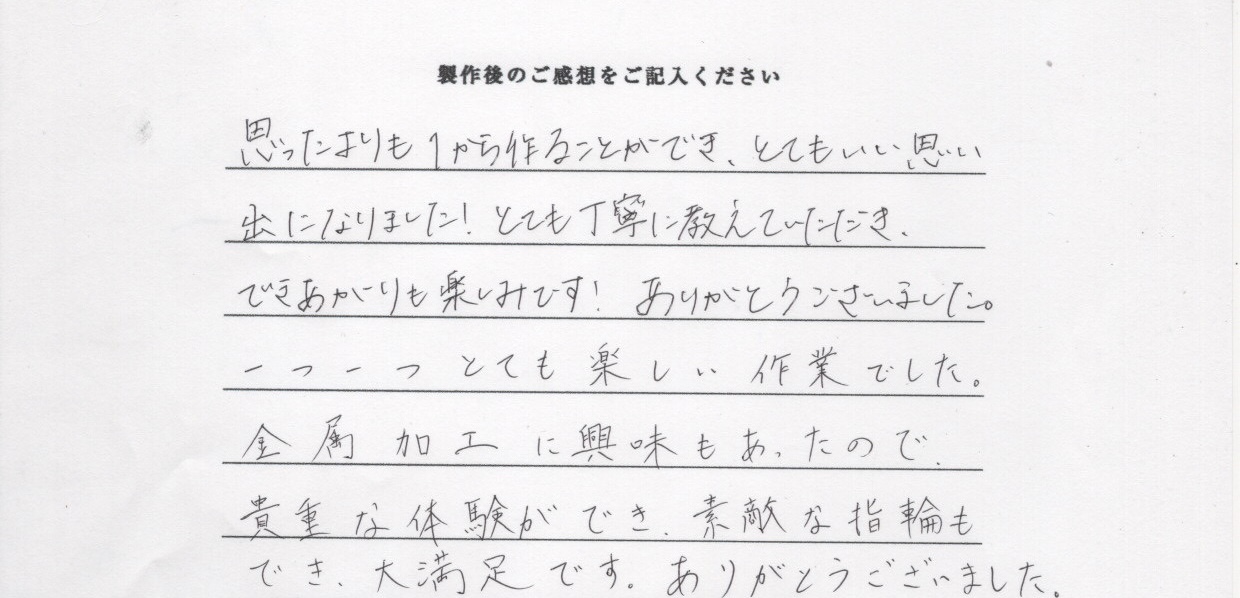 製作後のご感想をご記入ください
思ったよりも1から作ることができ、とてもいい思い
出になりました！とても丁寧に教えていただき、
できあがりも楽しみです！ ありがとうございました。
一つ一つとても楽しい作業でした。
金属加工に興味もあったので、
貴重な体験ができ、素敵な指輪も
でき、大満足です。ありがとうございました。